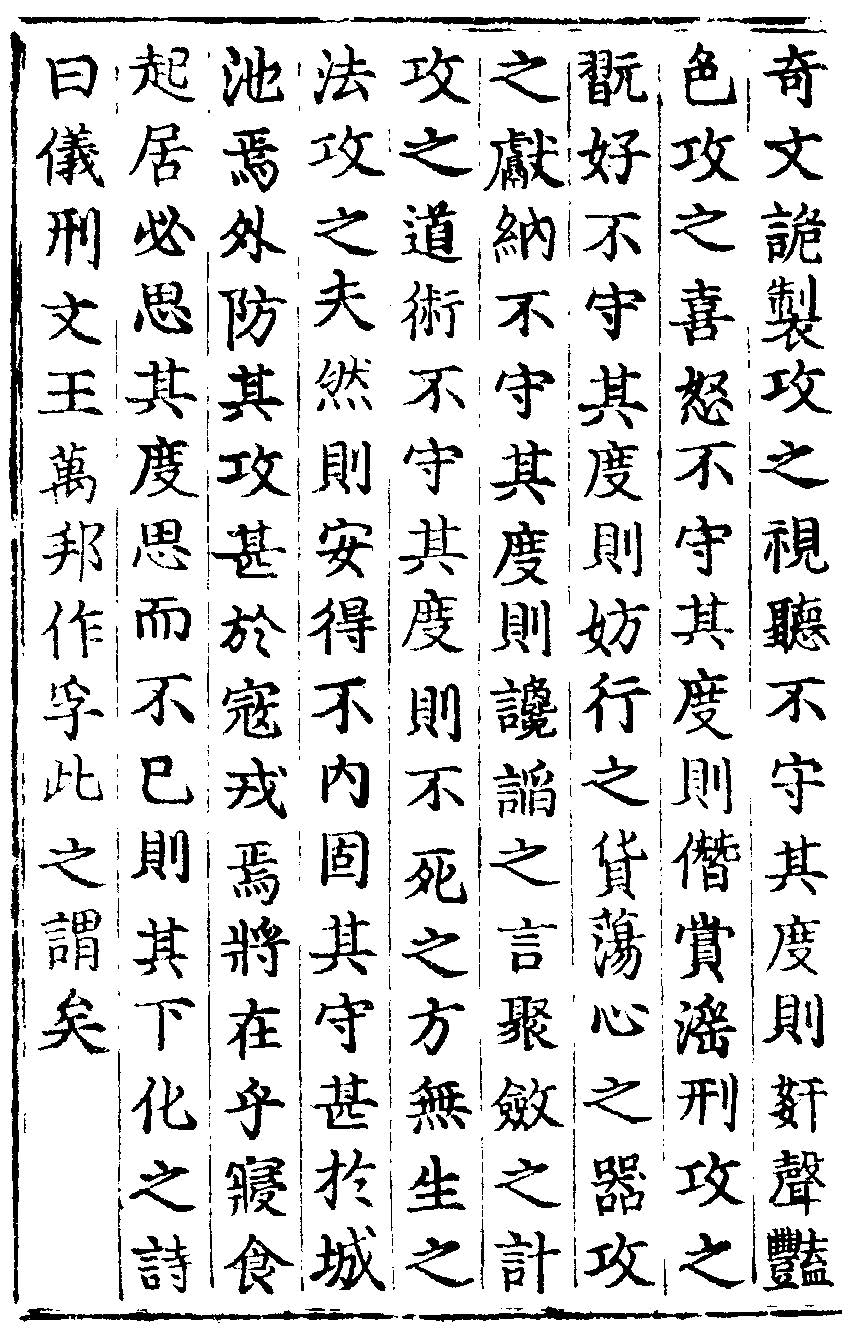 奇文詭製攻之視聽不守其度則姧聲豔
色攻之喜怒不守其度則僭賞滛刑攻之
翫好不守其度則妨行之貨蕩心之器攻
之獻納不守其度則讒謟之言聚斂之計
攻之道術不守其度則不死之方無生之
法攻之夫然則安得不內固其守甚於城
池焉外防其攻甚於寇戎焉將在乎寢食
起居必思其度思而不已則其下化之詩
曰儀刑文王萬邦作孚此之謂矣